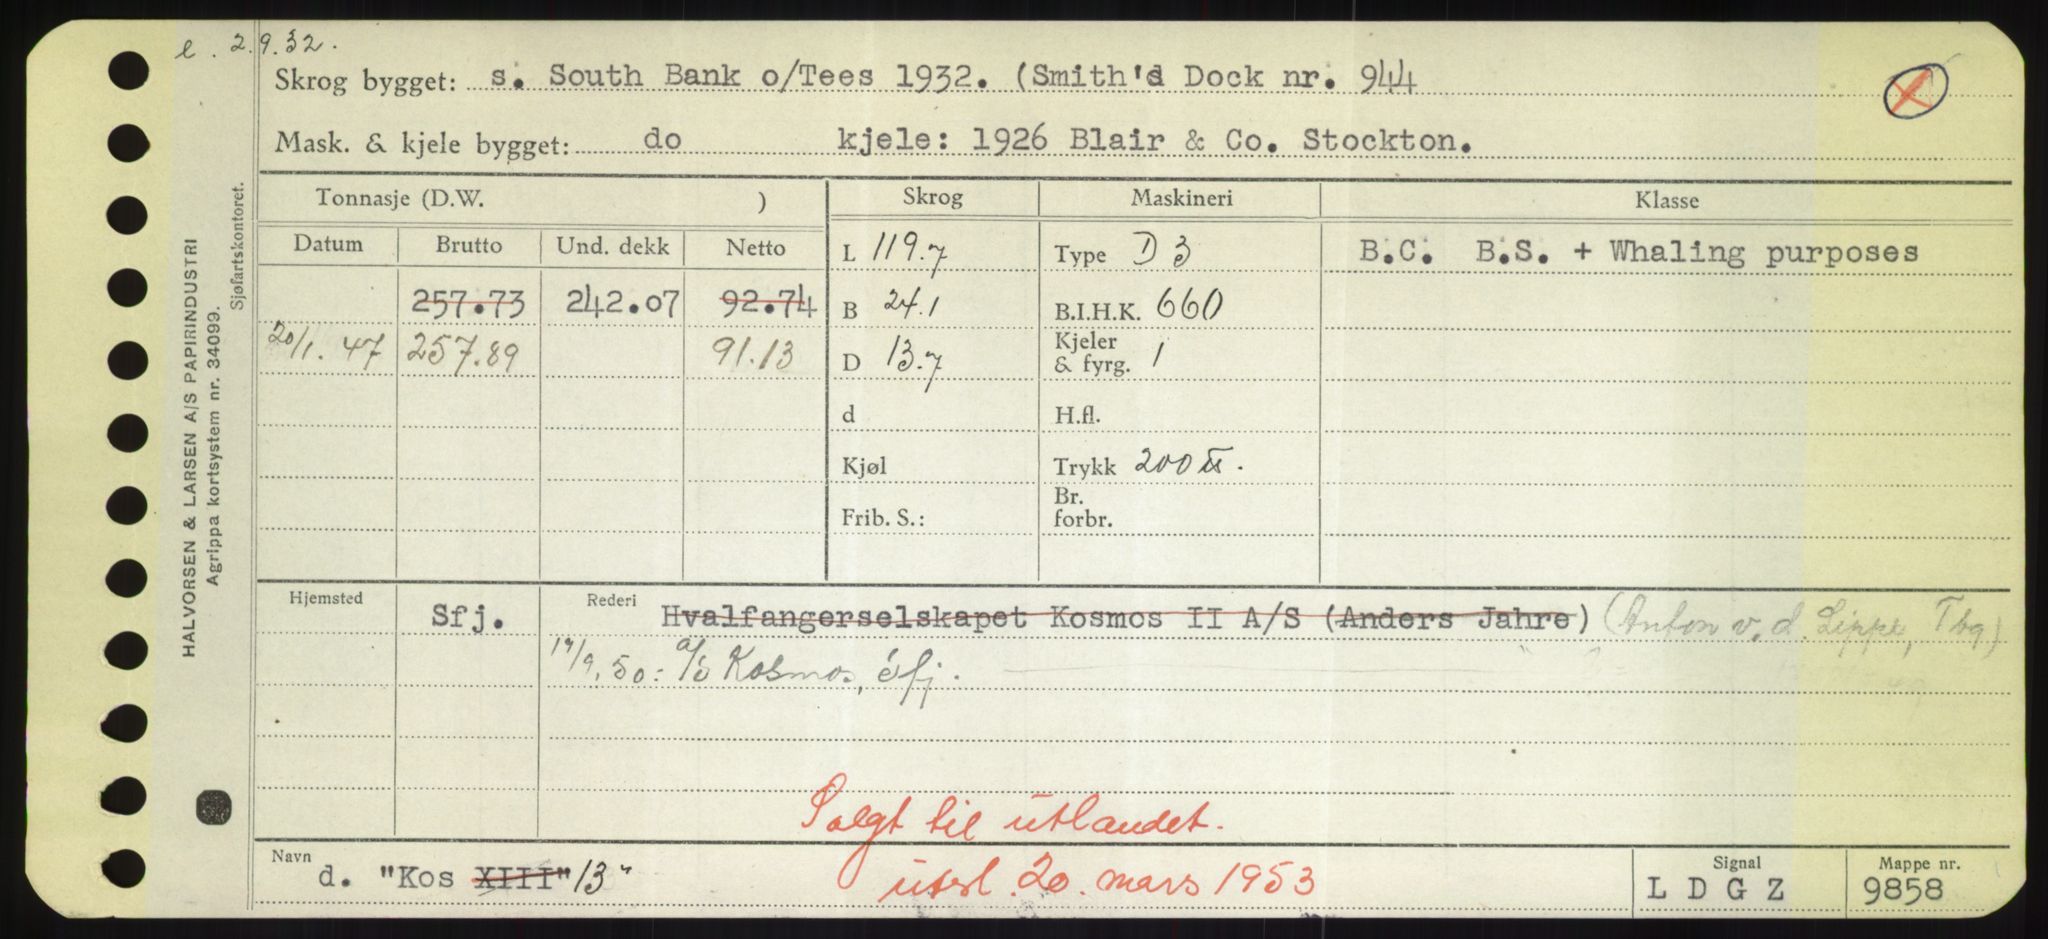 l. 2.9.32.
Skrog bygget: s. South Bank o/Tees 1932. (Smith's Dock nr. 944
Mask. & kjele bygget: do kjele: 1926 Blair & Co. Stockton.
Tonnasje (D.W. ) Skrog Maskineri Klasse
Datum Brutto Und. dekk Netto L 119.7 Type D 3 B.C. B.S. + Whaling purposes
257.73 242.07 92.74 B 24.1 B.I.H.K. 660
20/1. 47 257.89 91.13 D 13.7 Kjeler & fyrg. 1
d H.fl.
Kjøl Trykk 200 ℔.
Frib. S.: Br. forbr.
Hjemsted Sfj. Rederi Hvalfangerselskapet Kosmos II A/S (Anders Jahre) (Anton v. d. Lippe, Tbg)
19/9.50: A/S Kosmos, Sfj.
Solgt til utlandet.
Navn d. "Kos XIII" 13" utsl. 20. mars 1953 Signal L D G Z Mappe nr. 9858
HALVORSEN & LARSEN A/S PAPIRINDUSTRI
Agrippa kortsystem nr. 34099.
Sjøfartskontoret.